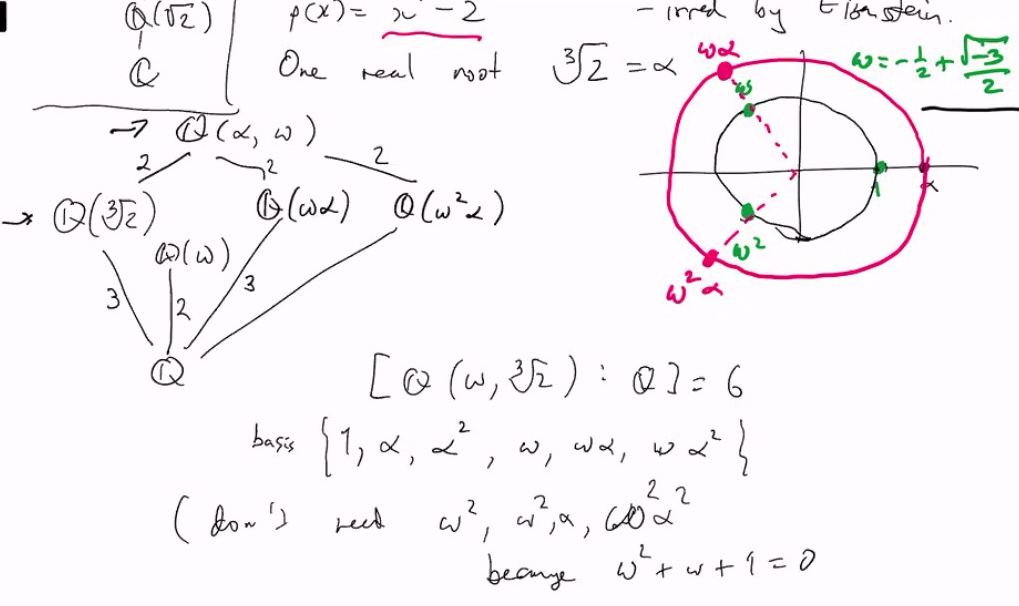 Q(√2)
p(x) = x - 2
- irred by Eisenstein.
Q
One real root ∛2 = α
ωα
ω = -1/2 + √-3/2
ω
1
α
ω²
ω²α
→ Q(α, ω)
2 2 2
→ Q(∛2) Q(ωα) Q(ω²α)
Q(ω)
3 2 3
Q
[Q(ω, ∛2) : Q] = 6
basis {1, α, α², ω, ωα, ωα²}
(don't need ω², ω², α, ω²α²
because ω² + ω + 1 = 0